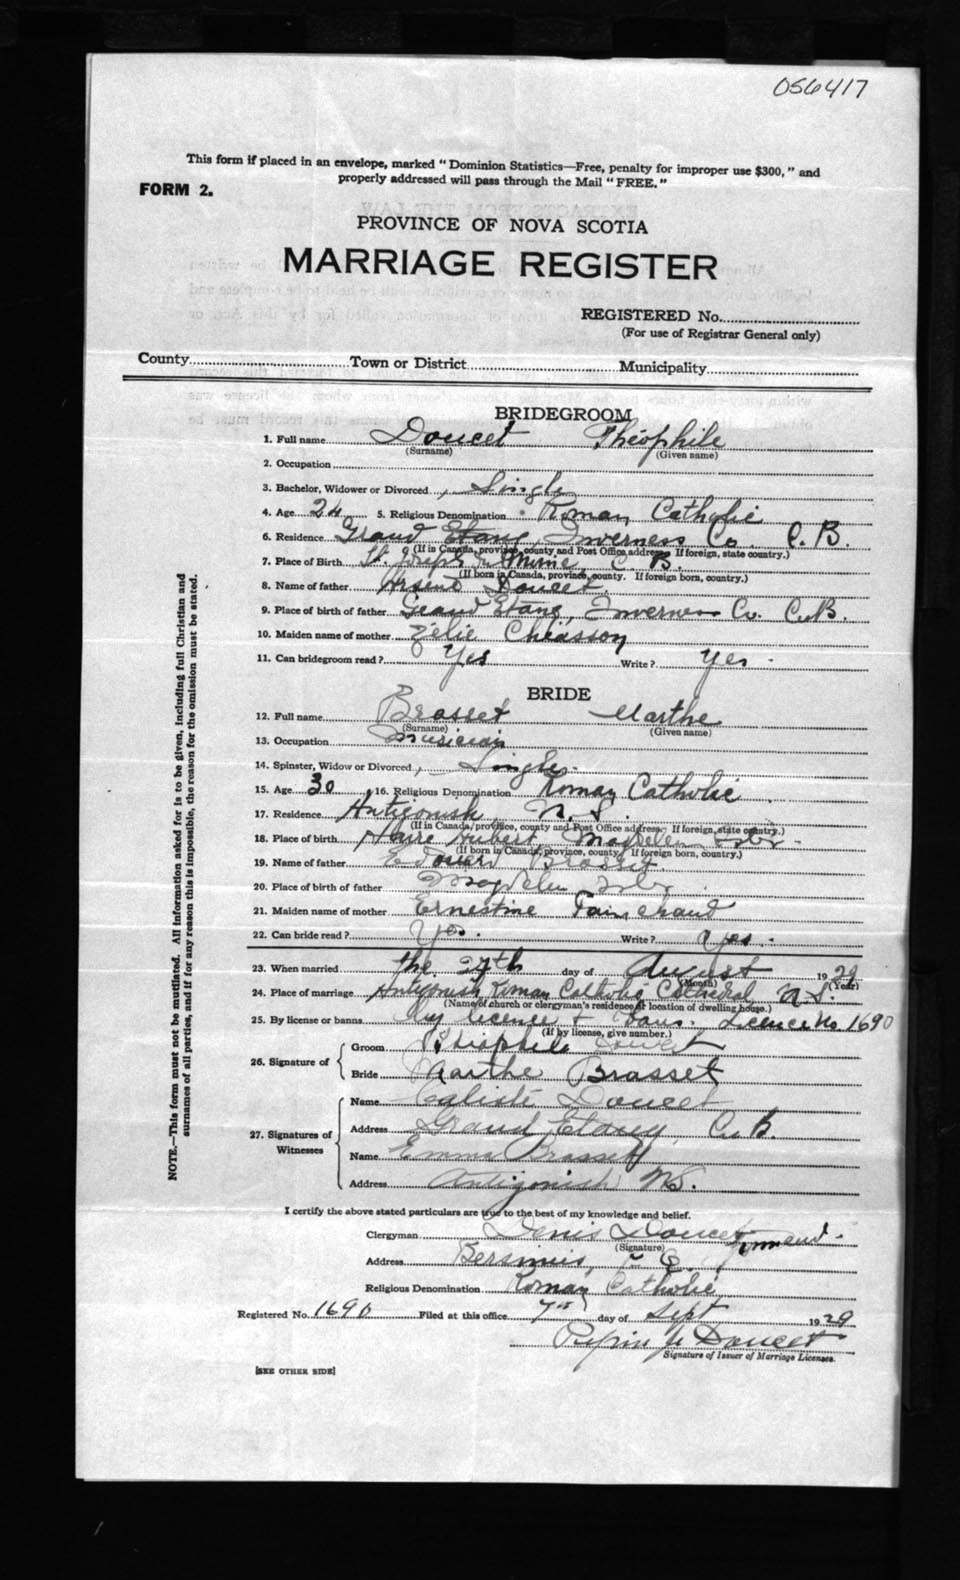 056417
This form if placed in an envelope, marked "Dominion Statistics—Free, penalty for improper use $300," and
properly addressed will pass through the Mail "FREE."
FORM 2.
PROVINCE OF NOVA SCOTIA
MARRIAGE REGISTER
REGISTERED No.
(For use of Registrar General only)
County Town or District Municipality
BRIDEGROOM
1. Full name Doucet Théophile
(Surname) (Given name)
2. Occupation
3. Bachelor, Widower or Divorced, Single
4. Age 24 5. Religious Denomination Roman Catholic
6. Residence Grand Etang, Inverness Co. C.B.
(If in Canada, province, county and Post Office address. If foreign, state country.)
7. Place of Birth St. Joseph du Moine, C.B.
(If born in Canada, province, county. If foreign born, country.)
8. Name of father Arsene Doucet
9. Place of birth of father Grand Etang, Inverness Co. C.B.
10. Maiden name of mother Zélie Chiasson
11. Can bridegroom read? Yes Write? Yes.
BRIDE
12. Full name Brasset Marthe
(Surname) (Given name)
13. Occupation Musician
14. Spinster, Widow or Divorced, Single.
15. Age 30 16. Religious Denomination Roman Catholic
17. Residence Antigonish, N.S.
(If in Canada, province, county and Post Office address. If foreign, state country.)
18. Place of birth Havre Aubert, Magdelen Isles.
(If born in Canada, province, county. If foreign born, country.)
19. Name of father Edouard Brasset.
20. Place of birth of father Magdelen Isles.
21. Maiden name of mother Ernestine Painchaud
22. Can bride read? Yes. Write? Yes.
23. When married the 27th day of August 1929
(Month) (Year)
24. Place of marriage Antigonish Roman Catholic Cathedral, N.S.
(Name of church or clergyman's residence or location of dwelling house.)
25. By license or banns By licence + bans. Licence No. 1690
(If by license, give number.)
26. Signature of
Groom Théophile Doucet
Bride Marthe Brasset
27. Signatures of Witnesses
Name Calixte Doucet
Address Grand Etang, C.B.
Name Emma Brassett
Address Antigonish N.S.
I certify the above stated particulars are true to the best of my knowledge and belief.
Clergyman Denis Doucet
(Signature)
Address Bersimis, P.Q.
Religious Denomination Roman Catholic
Registered No. 1690 Filed at this office 7th day of Sept 1929
Doucet
Signature of Issuer of Marriage Licenses.
[SEE OTHER SIDE]
NOTE.—This form must not be mutilated. All information asked for is to be given, including full Christian and
surnames of all parties, and if for any reason this is impossible, the reason for the omission must be stated.